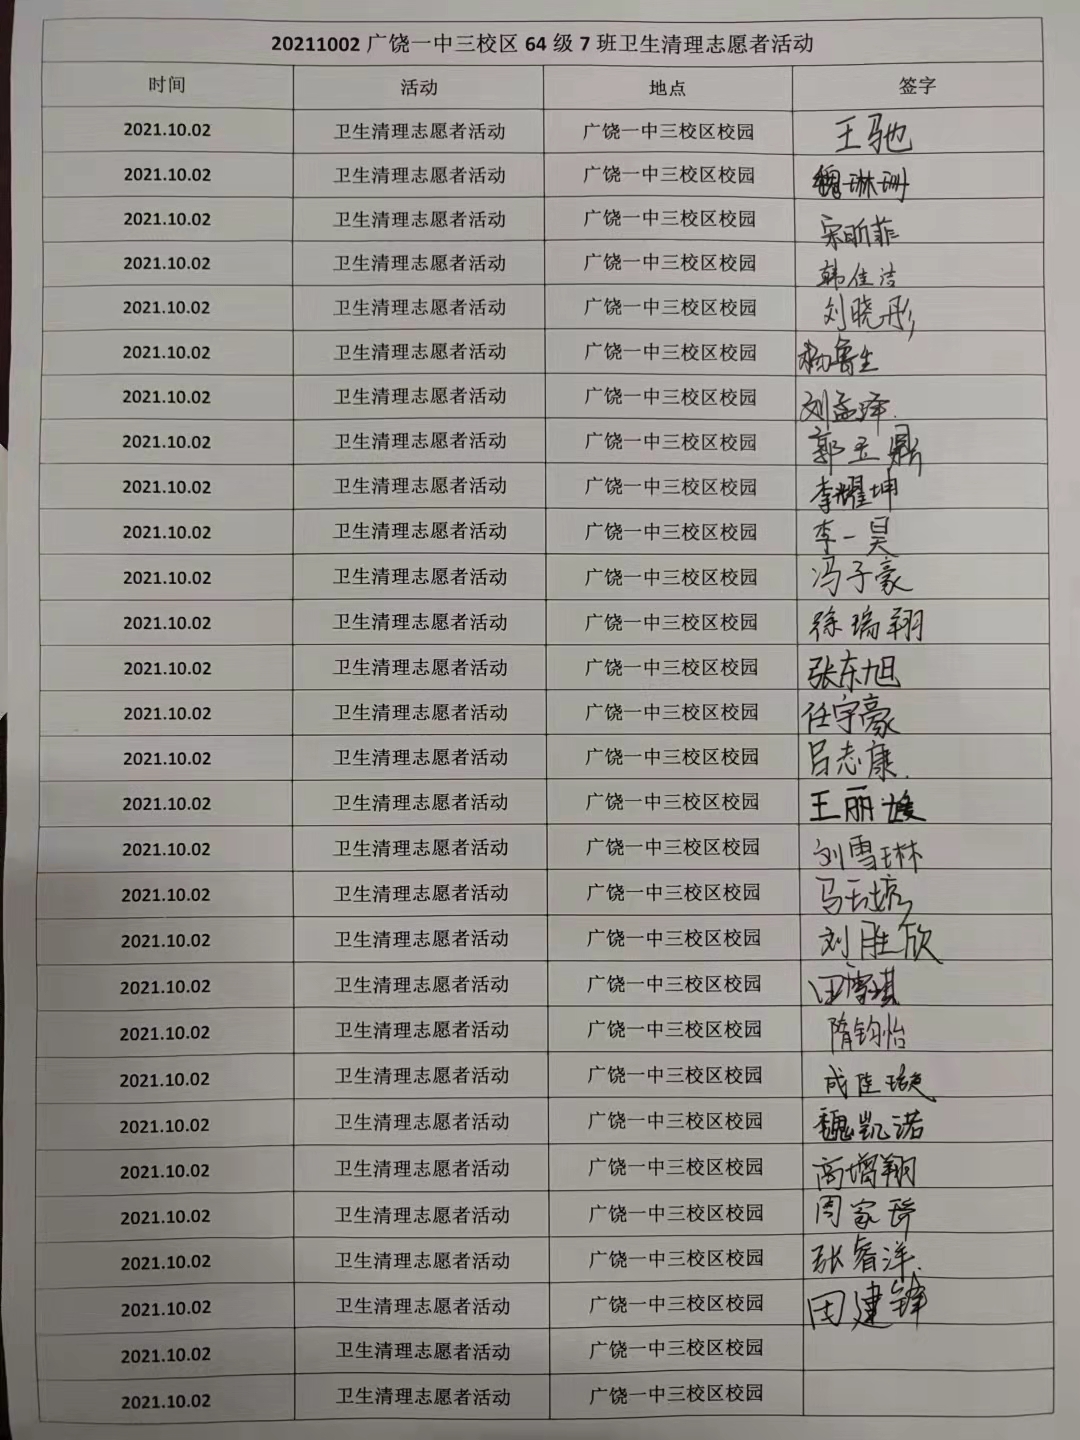 20211002 广饶一中三校区 64 级 7 班卫生清理志愿者活动
时间 活动 地点 签字
2021.10.02 卫生清理志愿者活动 广饶一中三校区校园 王驰
2021.10.02 卫生清理志愿者活动 广饶一中三校区校园 魏琳珊
2021.10.02 卫生清理志愿者活动 广饶一中三校区校园 宋昕菲
2021.10.02 卫生清理志愿者活动 广饶一中三校区校园 韩佳洁
2021.10.02 卫生清理志愿者活动 广饶一中三校区校园 刘晓彤
2021.10.02 卫生清理志愿者活动 广饶一中三校区校园 杨鲁生
2021.10.02 卫生清理志愿者活动 广饶一中三校区校园 刘孟泽
2021.10.02 卫生清理志愿者活动 广饶一中三校区校园 郭玉鼎
2021.10.02 卫生清理志愿者活动 广饶一中三校区校园 李耀坤
2021.10.02 卫生清理志愿者活动 广饶一中三校区校园 李一昊
2021.10.02 卫生清理志愿者活动 广饶一中三校区校园 冯子豪
2021.10.02 卫生清理志愿者活动 广饶一中三校区校园 徐瑞翔
2021.10.02 卫生清理志愿者活动 广饶一中三校区校园 张东旭
2021.10.02 卫生清理志愿者活动 广饶一中三校区校园 任宇豪
2021.10.02 卫生清理志愿者活动 广饶一中三校区校园 吕志康
2021.10.02 卫生清理志愿者活动 广饶一中三校区校园 王丽媛
2021.10.02 卫生清理志愿者活动 广饶一中三校区校园 刘雪琳
2021.10.02 卫生清理志愿者活动 广饶一中三校区校园
2021.10.02 卫生清理志愿者活动 广饶一中三校区校园 刘胜欣
2021.10.02 卫生清理志愿者活动 广饶一中三校区校园 田博琪
2021.10.02 卫生清理志愿者活动 广饶一中三校区校园 隋钧怡
2021.10.02 卫生清理志愿者活动 广饶一中三校区校园 成佳璇
2021.10.02 卫生清理志愿者活动 广饶一中三校区校园 魏凯诺
2021.10.02 卫生清理志愿者活动 广饶一中三校区校园 高增翔
2021.10.02 卫生清理志愿者活动 广饶一中三校区校园 周家琦
2021.10.02 卫生清理志愿者活动 广饶一中三校区校园 张睿洋
2021.10.02 卫生清理志愿者活动 广饶一中三校区校园 田建锋
2021.10.02 卫生清理志愿者活动 广饶一中三校区校园
2021.10.02 卫生清理志愿者活动 广饶一中三校区校园